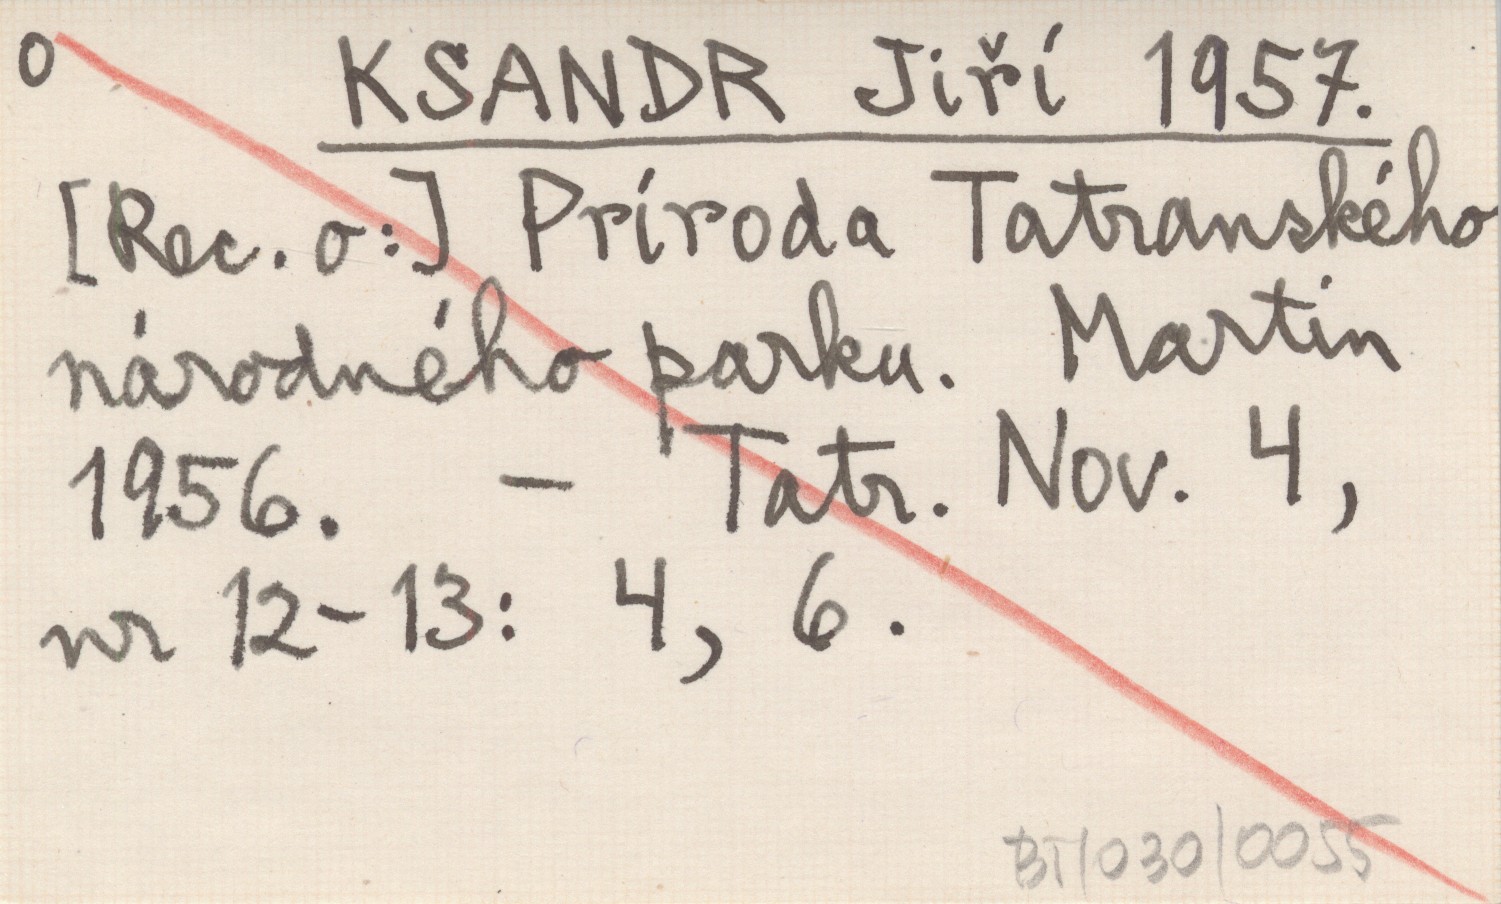 O KSANDR Jiří 1957.
[Rec. o:] Príroda Tatranského
národného parku. Martin
1956. – Tatr. Nov. 4,
nr 12–13: 4, 6.
BT/030/0055